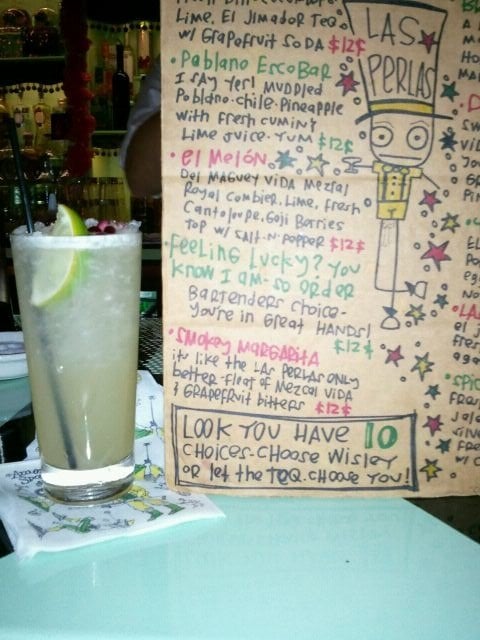 Lime. El Jimador Teq.
w/ Grapofruit SoDA $12$
• Pablano EscoBAR
I SAY Yes! MUDDled
Poblano•Chile•Pineapple
with fresh cumin &
Lime Juice•YUM $12$
• el Melón
Del MAGuey ViDA Mezcal
Royal Combier. Lime. Fresh
Cantaloupe. Goji Berries
Top w/ SALT•N•PePPeR $12$
• Feeling Lucky? You
Know I am•so ORDeR
BARtenders Choice•
You're in Great HANDS!
$12$
• Smokey MARGARitA
it's like the LAs PeRLAS ONLY
better•Float of Mezcal ViDA
& GRAPeFRuit bitters $12$
LOOK YOU HAVE 10
CHOiCeS•CHOOSE WiSley
OR let the TEQ. CHOOSE YOU!
LAS
PERLAS